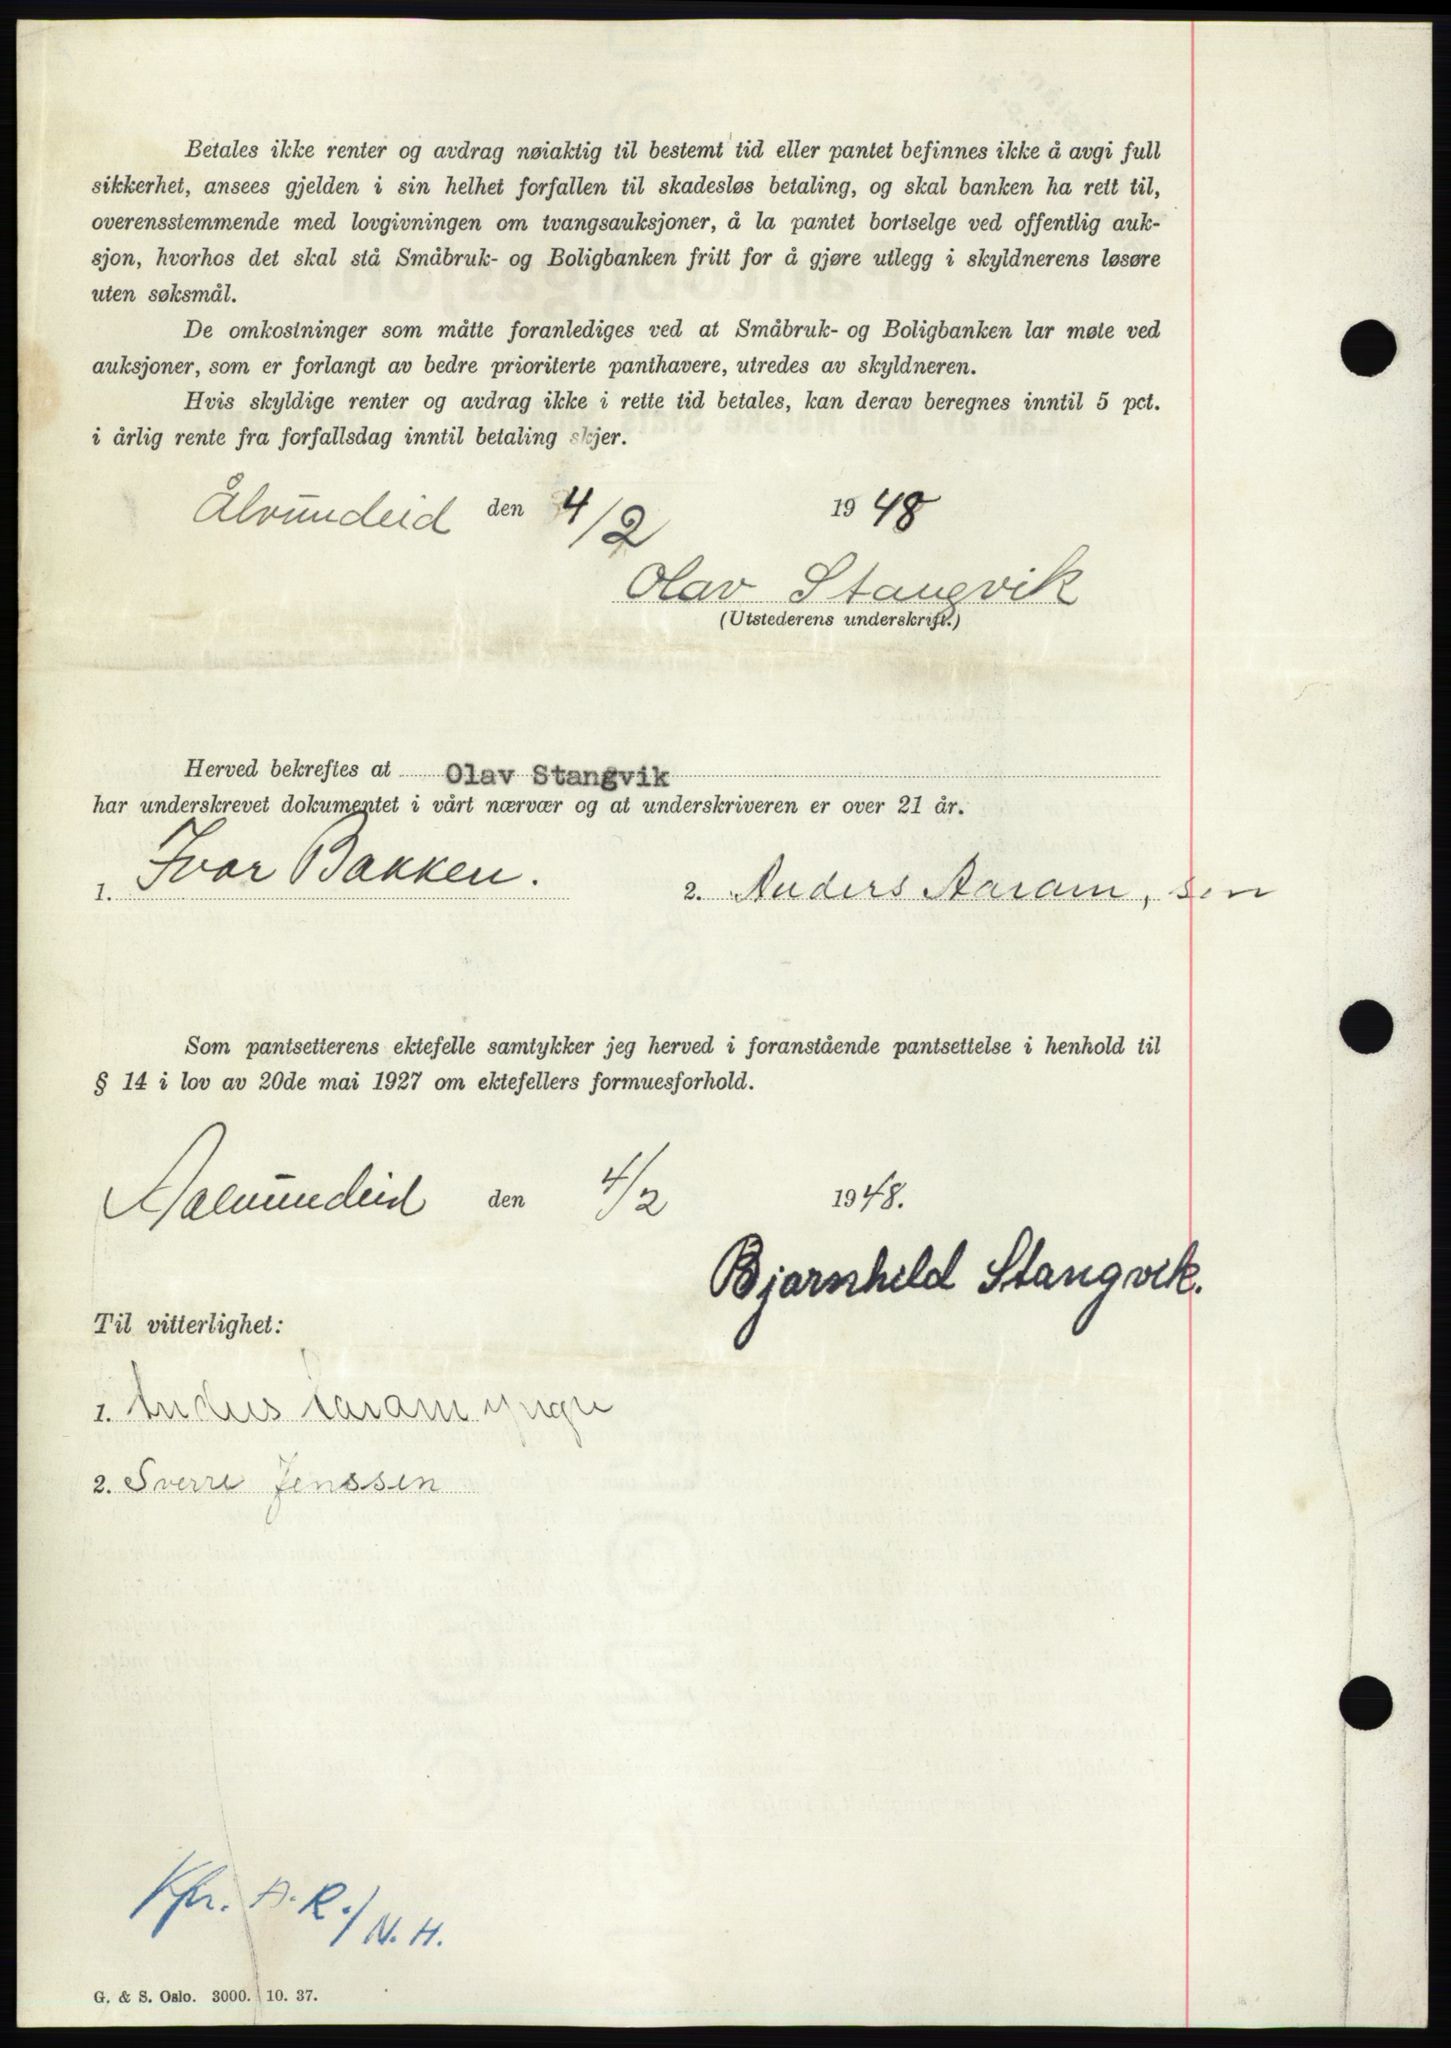 Betales ikke renter og avdrag nøiaktig til bestemt tid eller pantet befinnes ikke å avgi full
sikkerhet, ansees gjelden i sin helhet forfallen til skadesløs betaling, og skal banken ha rett til,
overensstemmende med lovgivningen om tvangsauksjoner, å la pantet bortselge ved offentlig auk-
sjon, hvorhos det skal stå Småbruk- og Boligbanken fritt for å gjøre utlegg i skyldnerens løsøre
uten søksmål.
De omkostninger som måtte foranlediges ved at Småbruk- og Boligbanken lar møte ved
auksjoner, som er forlangt av bedre prioriterte panthavere, utredes av skyldneren.
Hvis skyldige renter og avdrag ikke i rette tid betales, kan derav beregnes inntil 5 pct.
i årlig rente fra forfallsdag inntil betaling skjer.
Ålvundeid den 4/2 1948
Olav Stangvik
(Utstederens underskrift.)
Herved bekreftes at Olav Stangvik
har underskrevet dokumentet i vårt nærvær og at underskriveren er over 21 år.
1. Ivar Bakken. 2. Anders Aaram, sen
Som pantsetterens ektefelle samtykker jeg herved i foranstående pantsettelse i henhold til
§ 14 i lov av 20de mai 1927 om ektefellers formuesforhold.
Aalvundeid den 4/2 1948.
Bjarnhild Stangvik.
Til vitterlighet:
1. Anders Aaram yngre
2. Sverre Jenssen
Kfr. A. R./N. H.
G. & S. Oslo. 3000. 10. 37.